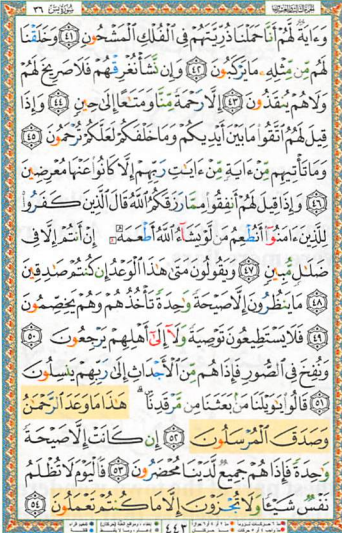 سورة يس ٣٦
وَءَايَةٌ لَّهُمْ أَنَّا حَمَلْنَا ذُرِّيَّتَهُمْ فِى ٱلْفُلْكِ ٱلْمَشْحُونِ ٤١ وَخَلَقْنَا
لَهُم مِّن مِّثْلِهِۦ مَا يَرْكَبُونَ ٤٢ وَإِن نَّشَأْ نُغْرِقْهُمْ فَلَا صَرِيخَ لَهُمْ
وَلَا هُمْ يُنقَذُونَ ٤٣ إِلَّا رَحْمَةً مِّنَّا وَمَتَـٰعًا إِلَىٰ حِينٍ ٤٤ وَإِذَا
قِيلَ لَهُمُ ٱتَّقُوا۟ مَا بَيْنَ أَيْدِيكُمْ وَمَا خَلْفَكُمْ لَعَلَّكُمْ تُرْحَمُونَ ٤٥
وَمَا تَأْتِيهِم مِّنْ ءَايَةٍ مِّنْ ءَايَـٰتِ رَبِّهِمْ إِلَّا كَانُوا۟ عَنْهَا مُعْرِضِينَ
٤٦ وَإِذَا قِيلَ لَهُمْ أَنفِقُوا۟ مِمَّا رَزَقَكُمُ ٱللَّهُ قَالَ ٱلَّذِينَ كَفَرُوا۟
لِلَّذِينَ ءَامَنُوٓا۟ أَنُطْعِمُ مَن لَّوْ يَشَآءُ ٱللَّهُ أَطْعَمَهُۥٓ إِنْ أَنتُمْ إِلَّا فِى
ضَلَـٰلٍ مُّبِينٍ ٤٧ وَيَقُولُونَ مَتَىٰ هَـٰذَا ٱلْوَعْدُ إِن كُنتُمْ صَـٰدِقِينَ
٤٨ مَا يَنظُرُونَ إِلَّا صَيْحَةً وَٰحِدَةً تَأْخُذُهُمْ وَهُمْ يَخِصِّمُونَ
٤٩ فَلَا يَسْتَطِيعُونَ تَوْصِيَةً وَلَآ إِلَىٰٓ أَهْلِهِمْ يَرْجِعُونَ ٥٠
وَنُفِخَ فِى ٱلصُّورِ فَإِذَا هُم مِّنَ ٱلْأَجْدَاثِ إِلَىٰ رَبِّهِمْ يَنسِلُونَ
٥١ قَالُوا۟ يَـٰوَيْلَنَا مَنۢ بَعَثَنَا مِن مَّرْقَدِنَا ۜ ۗ هَـٰذَا مَا وَعَدَ ٱلرَّحْمَـٰنُ
وَصَدَقَ ٱلْمُرْسَلُونَ ٥٢ إِن كَانَتْ إِلَّا صَيْحَةً
وَٰحِدَةً فَإِذَا هُمْ جَمِيعٌ لَّدَيْنَا مُحْضَرُونَ ٥٣ فَٱلْيَوْمَ لَا تُظْلَمُ
نَفْسٌ شَيْـًٔا وَلَا تُجْزَوْنَ إِلَّا مَا كُنتُمْ تَعْمَلُونَ ٥٤
٤٤٢